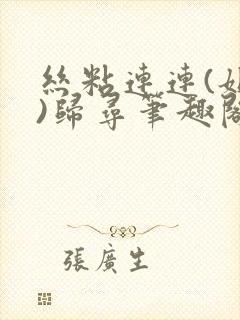 絲粘連連(
)歸尋筆趣閣
張廣生